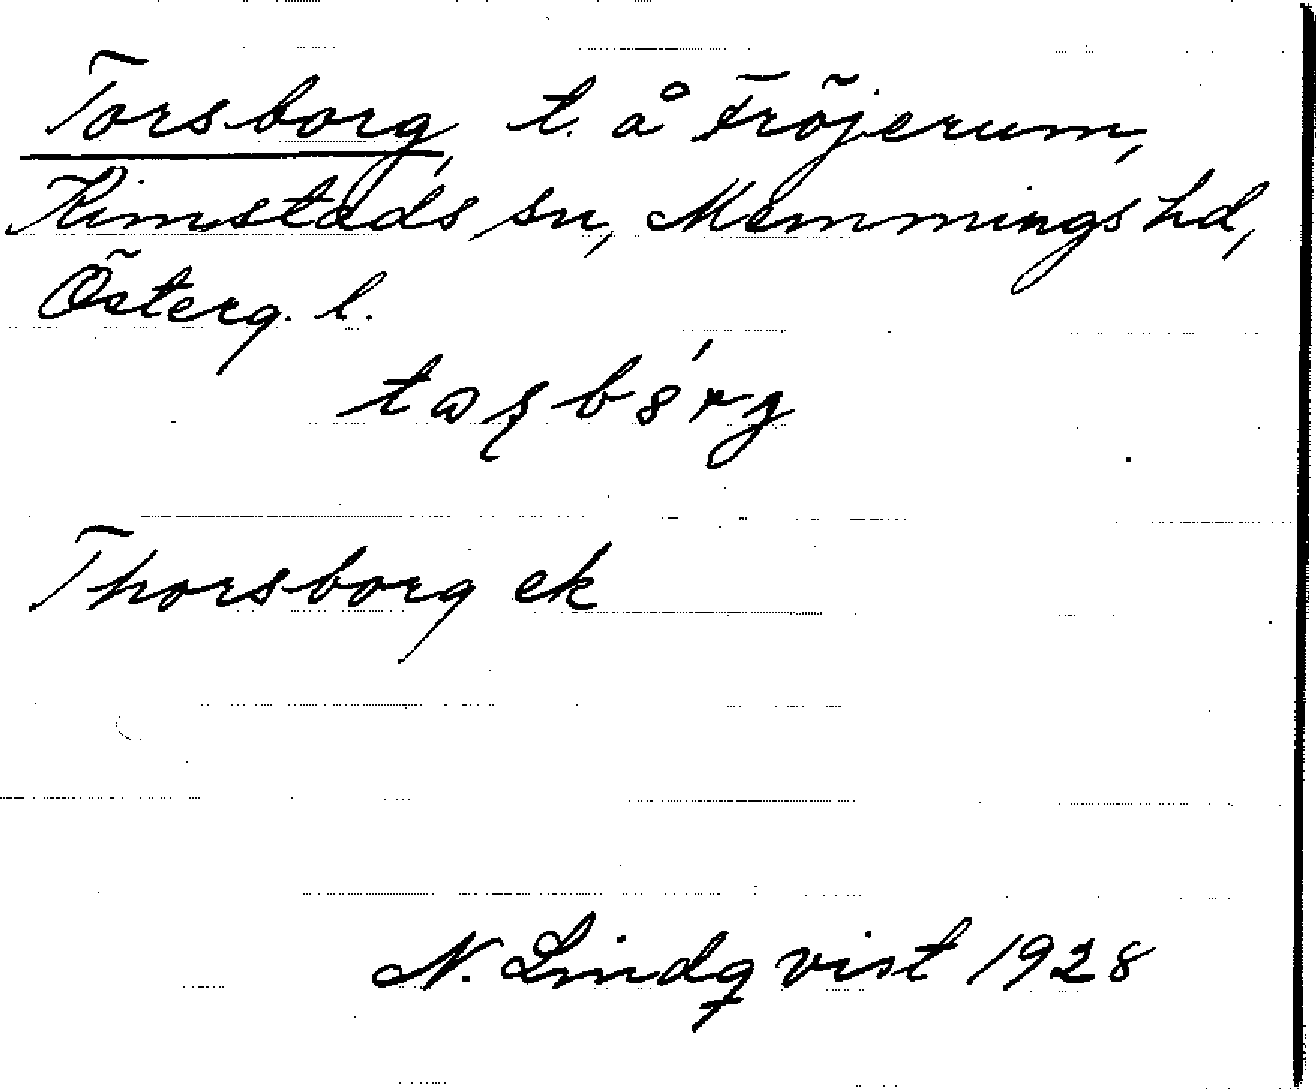 Torsborg, t. å Fröjerum,
Kimstads sn, Memmings hd,
Österg. l.
Thorsborg ek
N. Lindqvist 1928